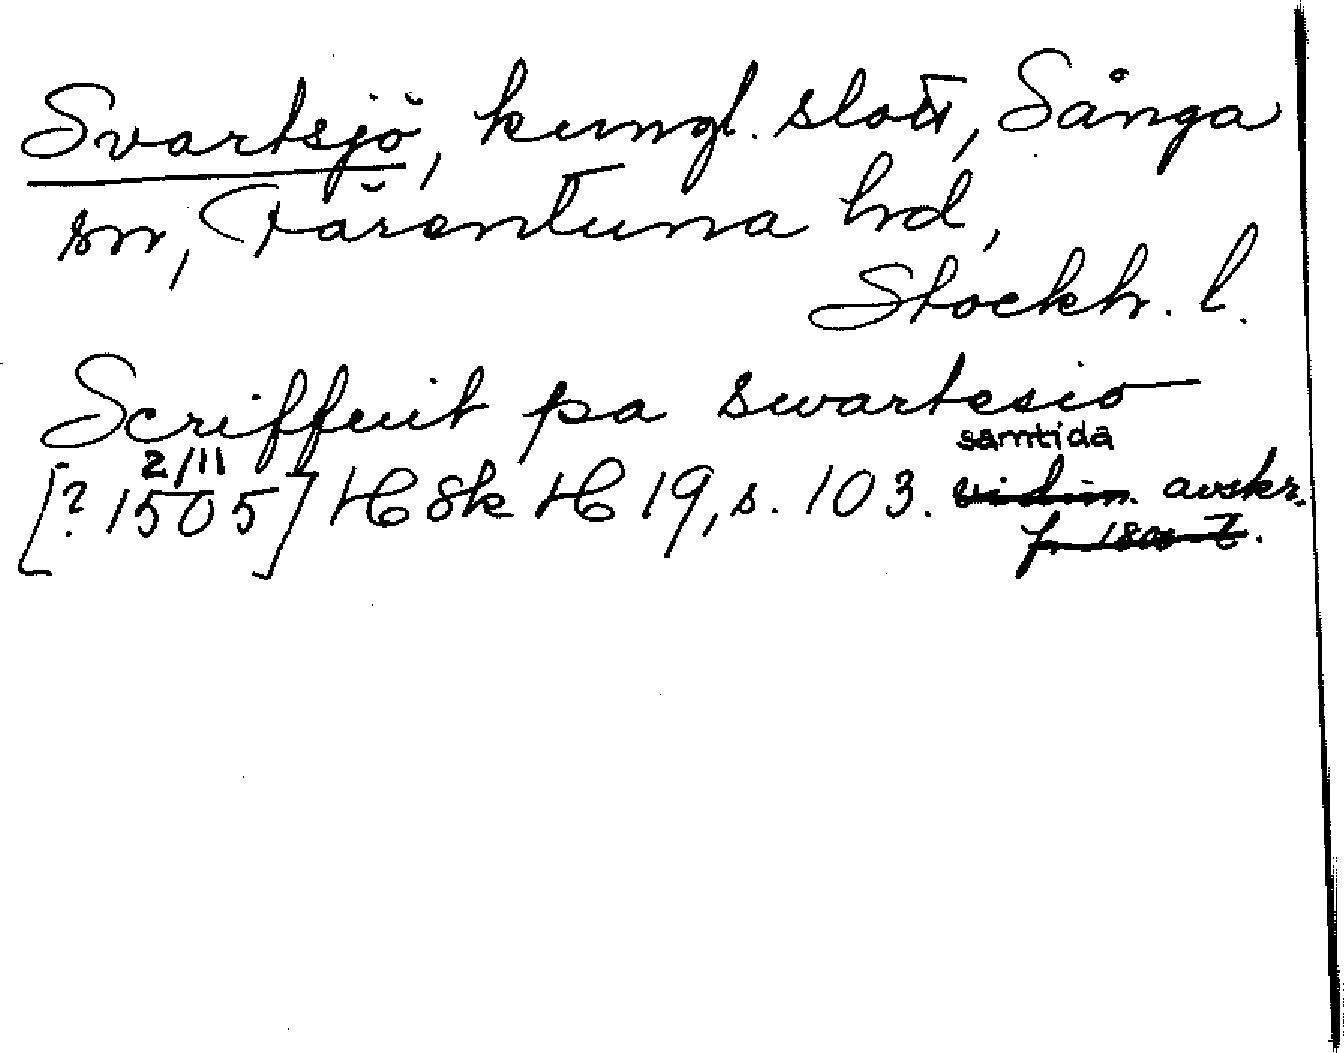 Svartsjö, kungl. slott, Sånga
sn, Färentuna hd,
Stockh. l.
Scriffuit pa swartesio
samtida
2/11
[? 1505] H Sk H 19, s. 103. vidim. avskr.
fr. 1800-t.